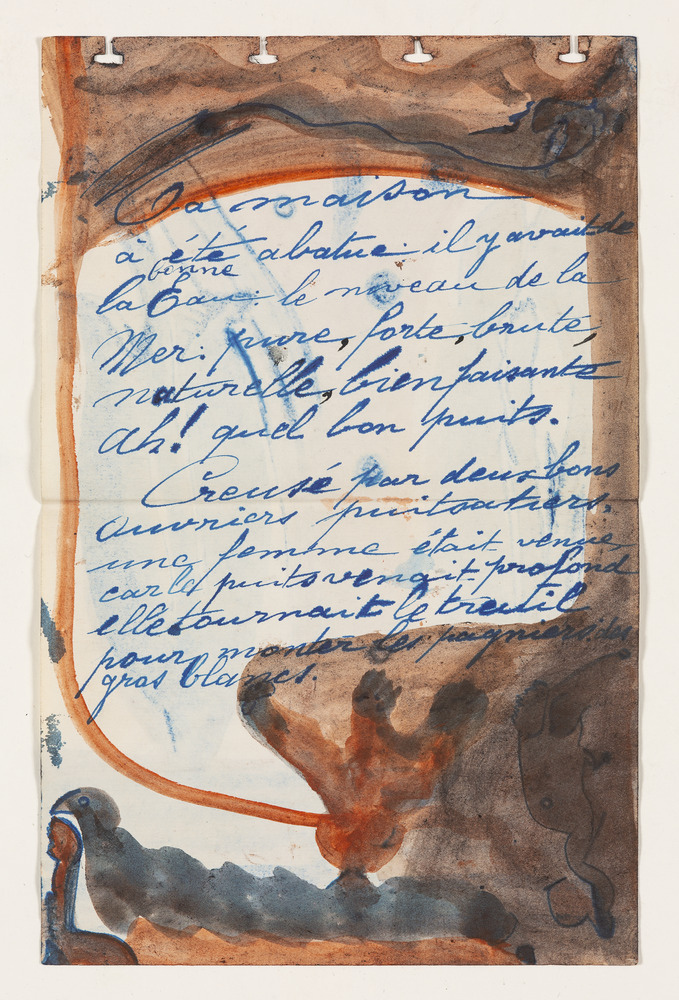 La maison
à été abatue. il y avait de
la bonne Eau. le niveau de la
Mer. pure, forte, brute,
naturelle, bien faisante
ah! quel bon puits.
Creusé par deux bons
ouvriers puitsatiers.
une femme était venue,
car le puits venait profond
elle tournait le treuil
pour monter les pagniers des
gros blancs.